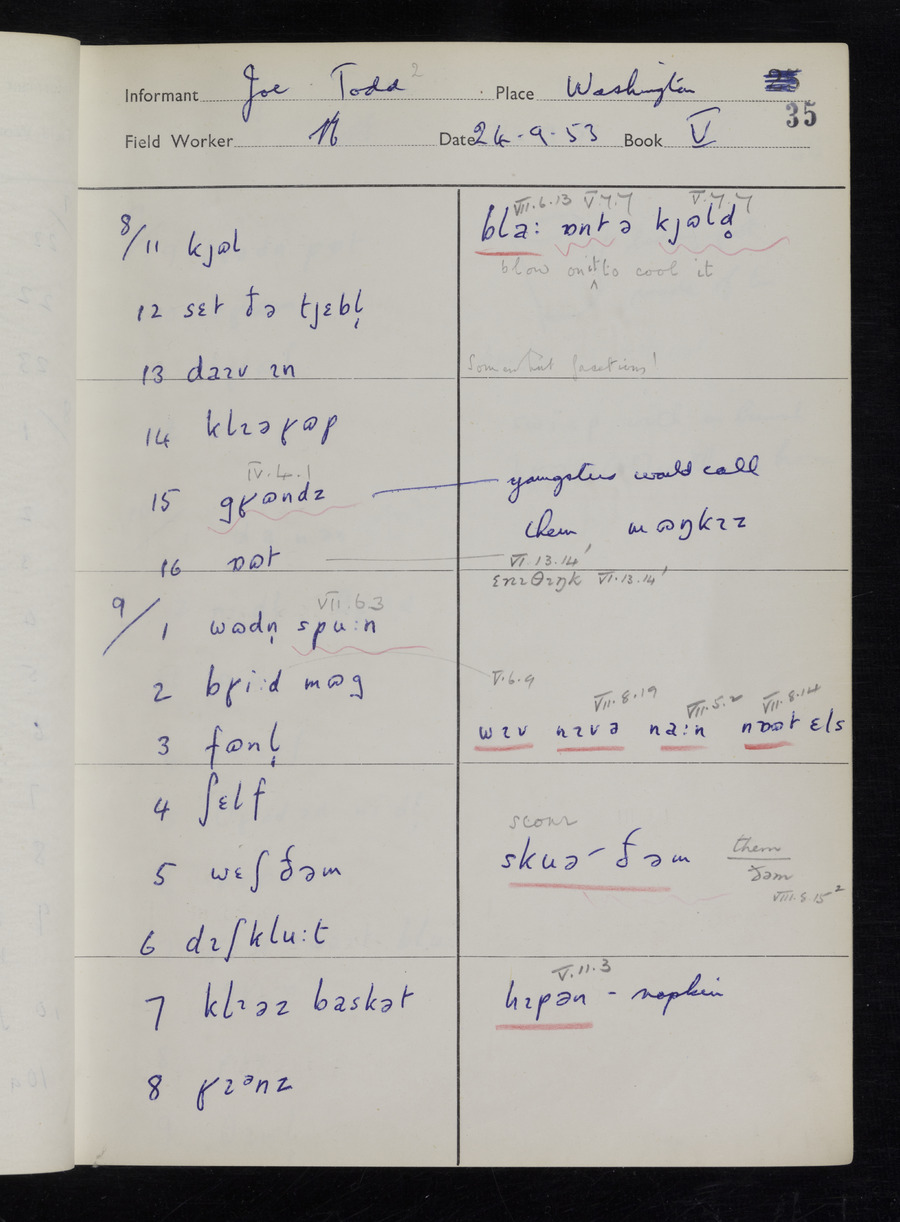 Informant Joe Todd 2 Place Washington 35
Field Worker Date 24-9-53 Book V
VII.6.13 V.7.7 V.7.7
8/11 kjɷl bla: ɒntə kjɷld̥
blow on it to cool it
12 sɛt ðə tjɛbl̩
13 daɪv ɪn Somewhat facetious!
14 klɪəʁɷp
IV.4.1
15 gʁɷndz youngsters would call
them mɷŋkɪz
16 ɒɷt VI.13.14'
ɛnɪθɪŋk VI.13.14'
VII.6.3
9/1 wɷdn̩ spu:n
2 bʁi:d mɷg V.6.9
VII.8.19 VII.5.2 VII.8.14
3 fɷnl̩ wɪv nɪvə na:n nɒɷt ɛls
4 ʃɛlf
scour
5 wɛʃ ðəm skuə- ðəm them
ðəm
VIII.8.15²
6 dɪʃklu:t
V.11.3
7 klɪəz baskət hɪpən - napkin
8 ʁɪənz